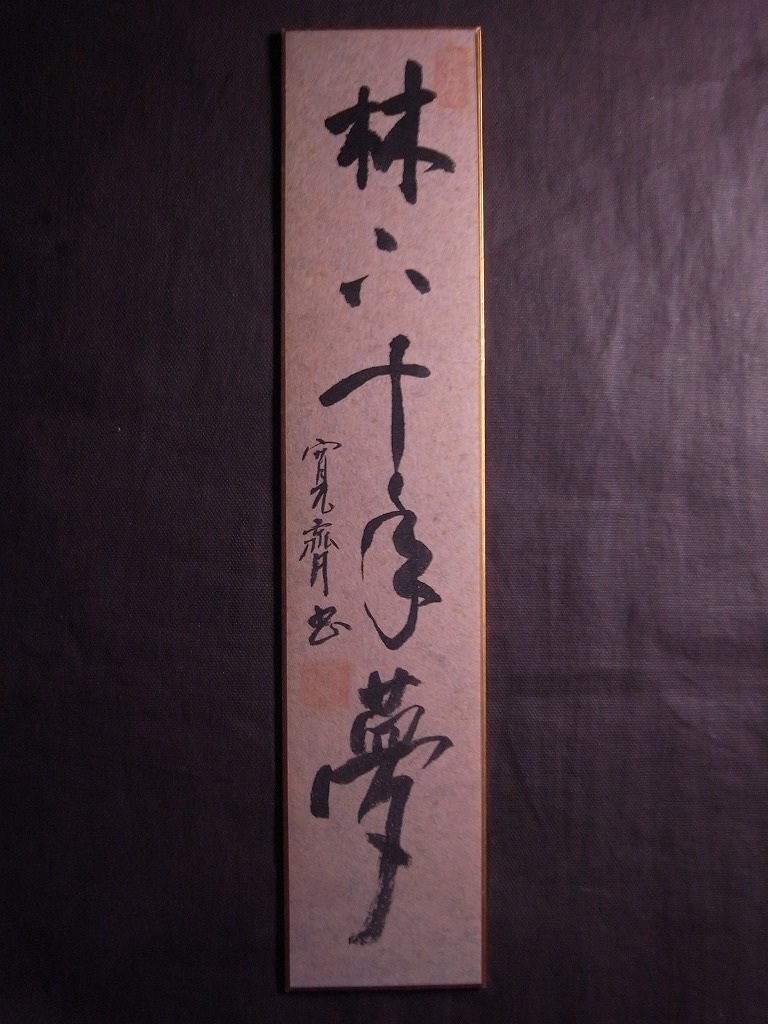 林六十年夢
寛齊書